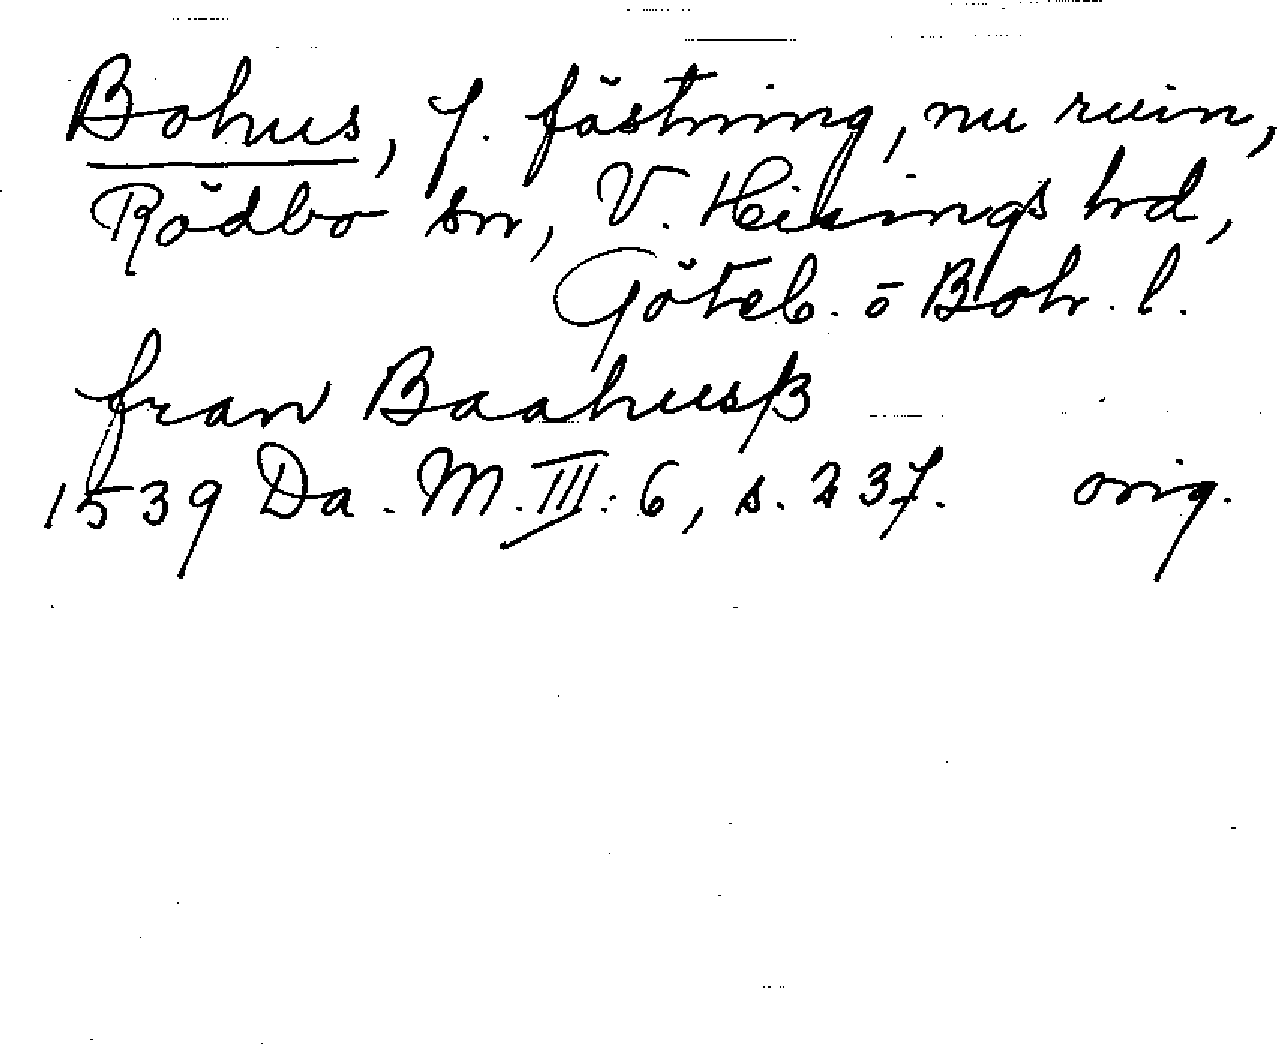 Bohus, f. fästning, nu ruin,
Rödbo sn, V. Hisings hrd,
Göteb. o Boh. l.
fran Baahusß
1539 Da. M. III: 6, s. 237. orig.